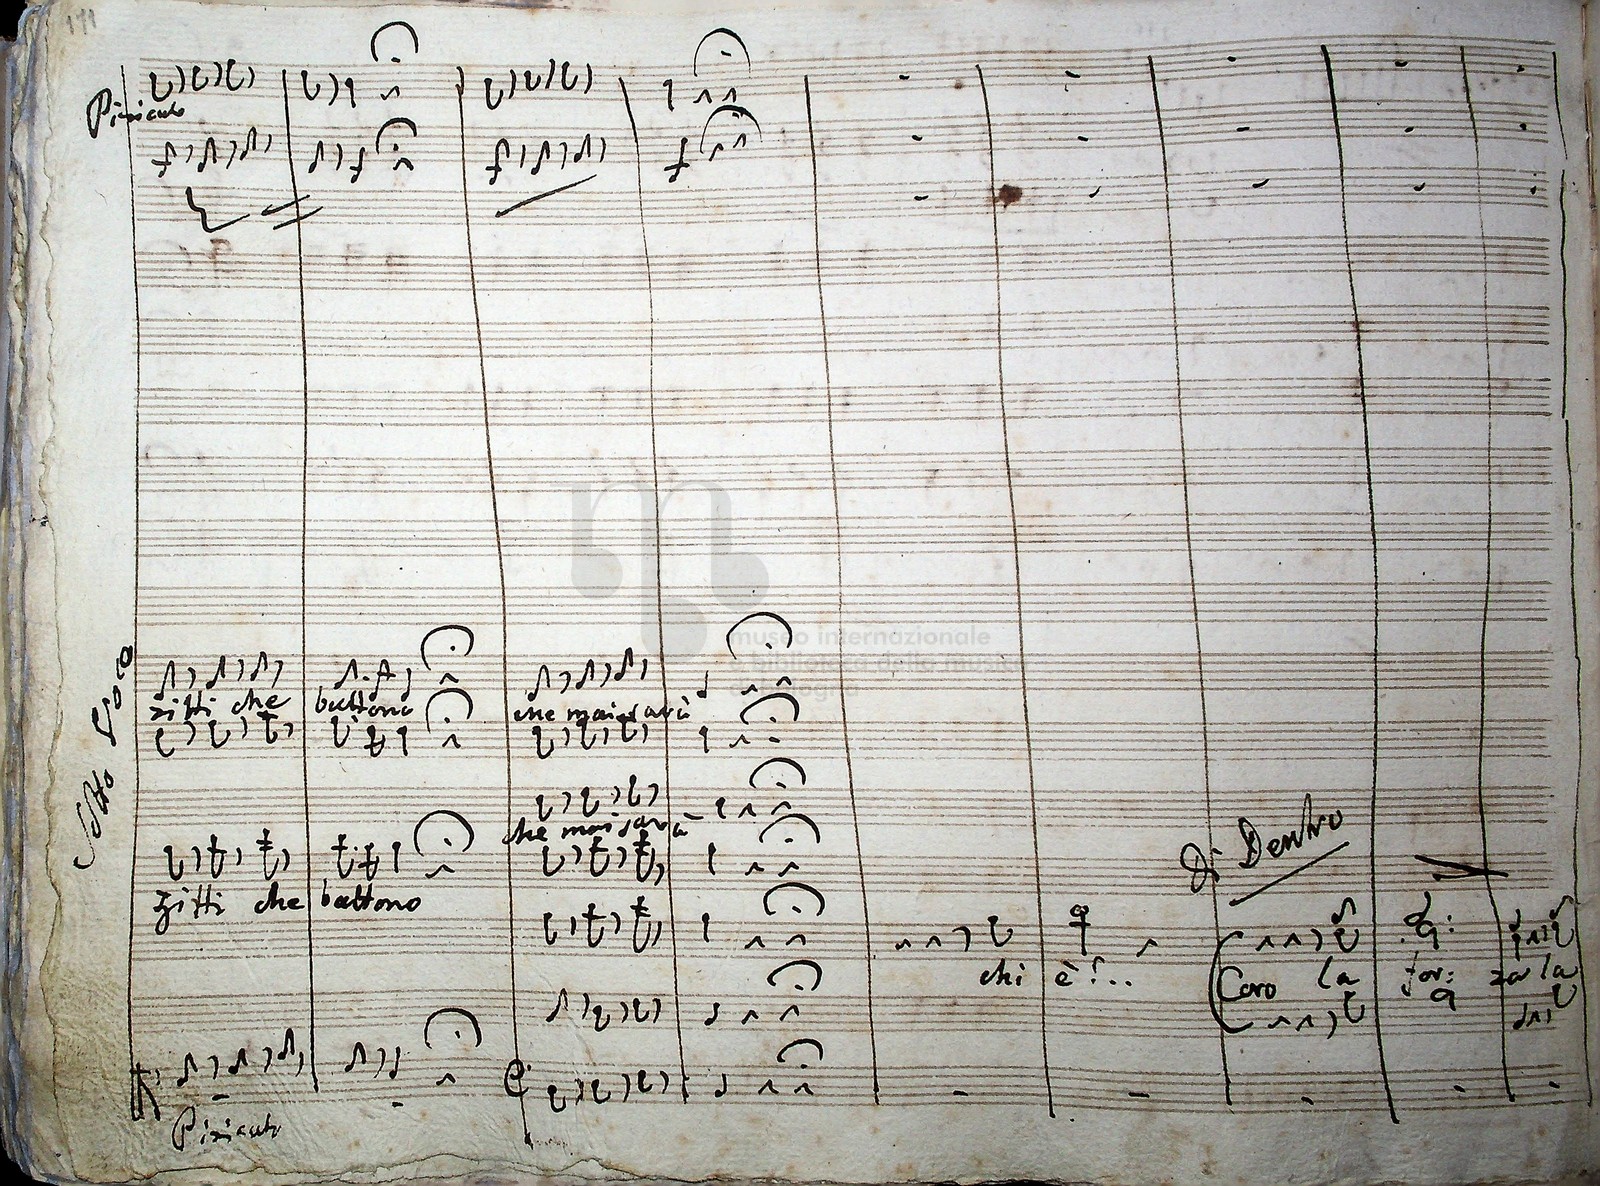 171
Pizzicato
Sotto Voce
museo internazionale
e biblioteca della musica
di bologna
zitti che battono
che mai sarà
che mai sarà
Di Dentro
zitti che battono
chi è!..
Coro la for: za la
Pizzicato